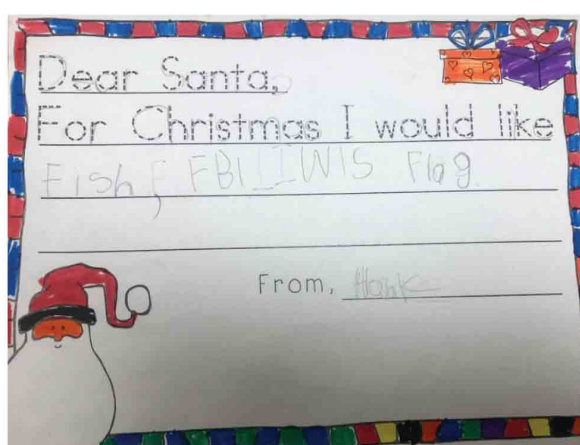 Dear Santa,
For Christmas I would like
Fish, Flag.
From, Hank